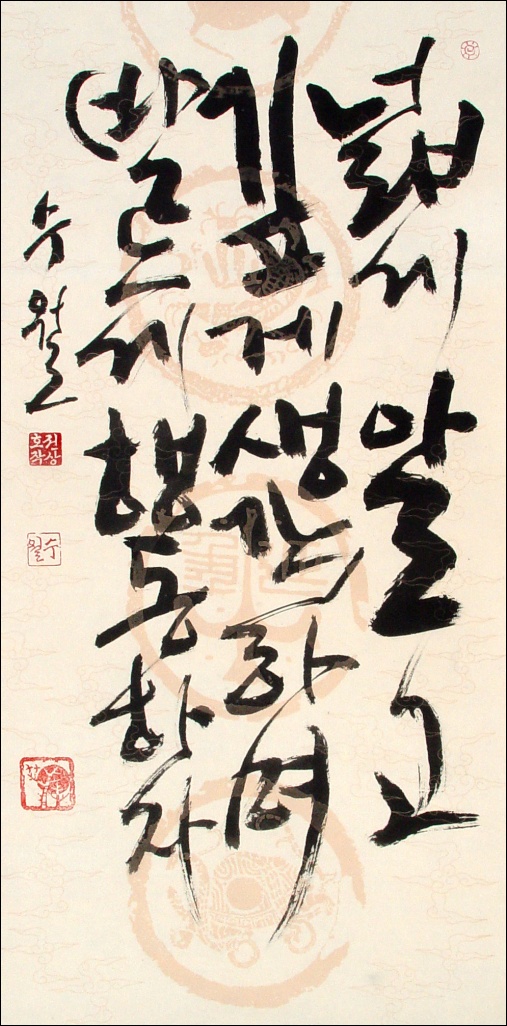 넓게 알고
깊게 생각하며
바르게 행동하자
수월
권상호작
수월